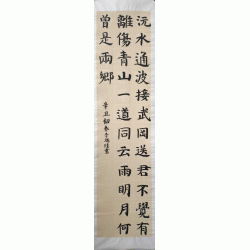 沅水通波接武岡送君不覺有
離傷青山一道同云雨明月何
曾是兩鄉
辛丑